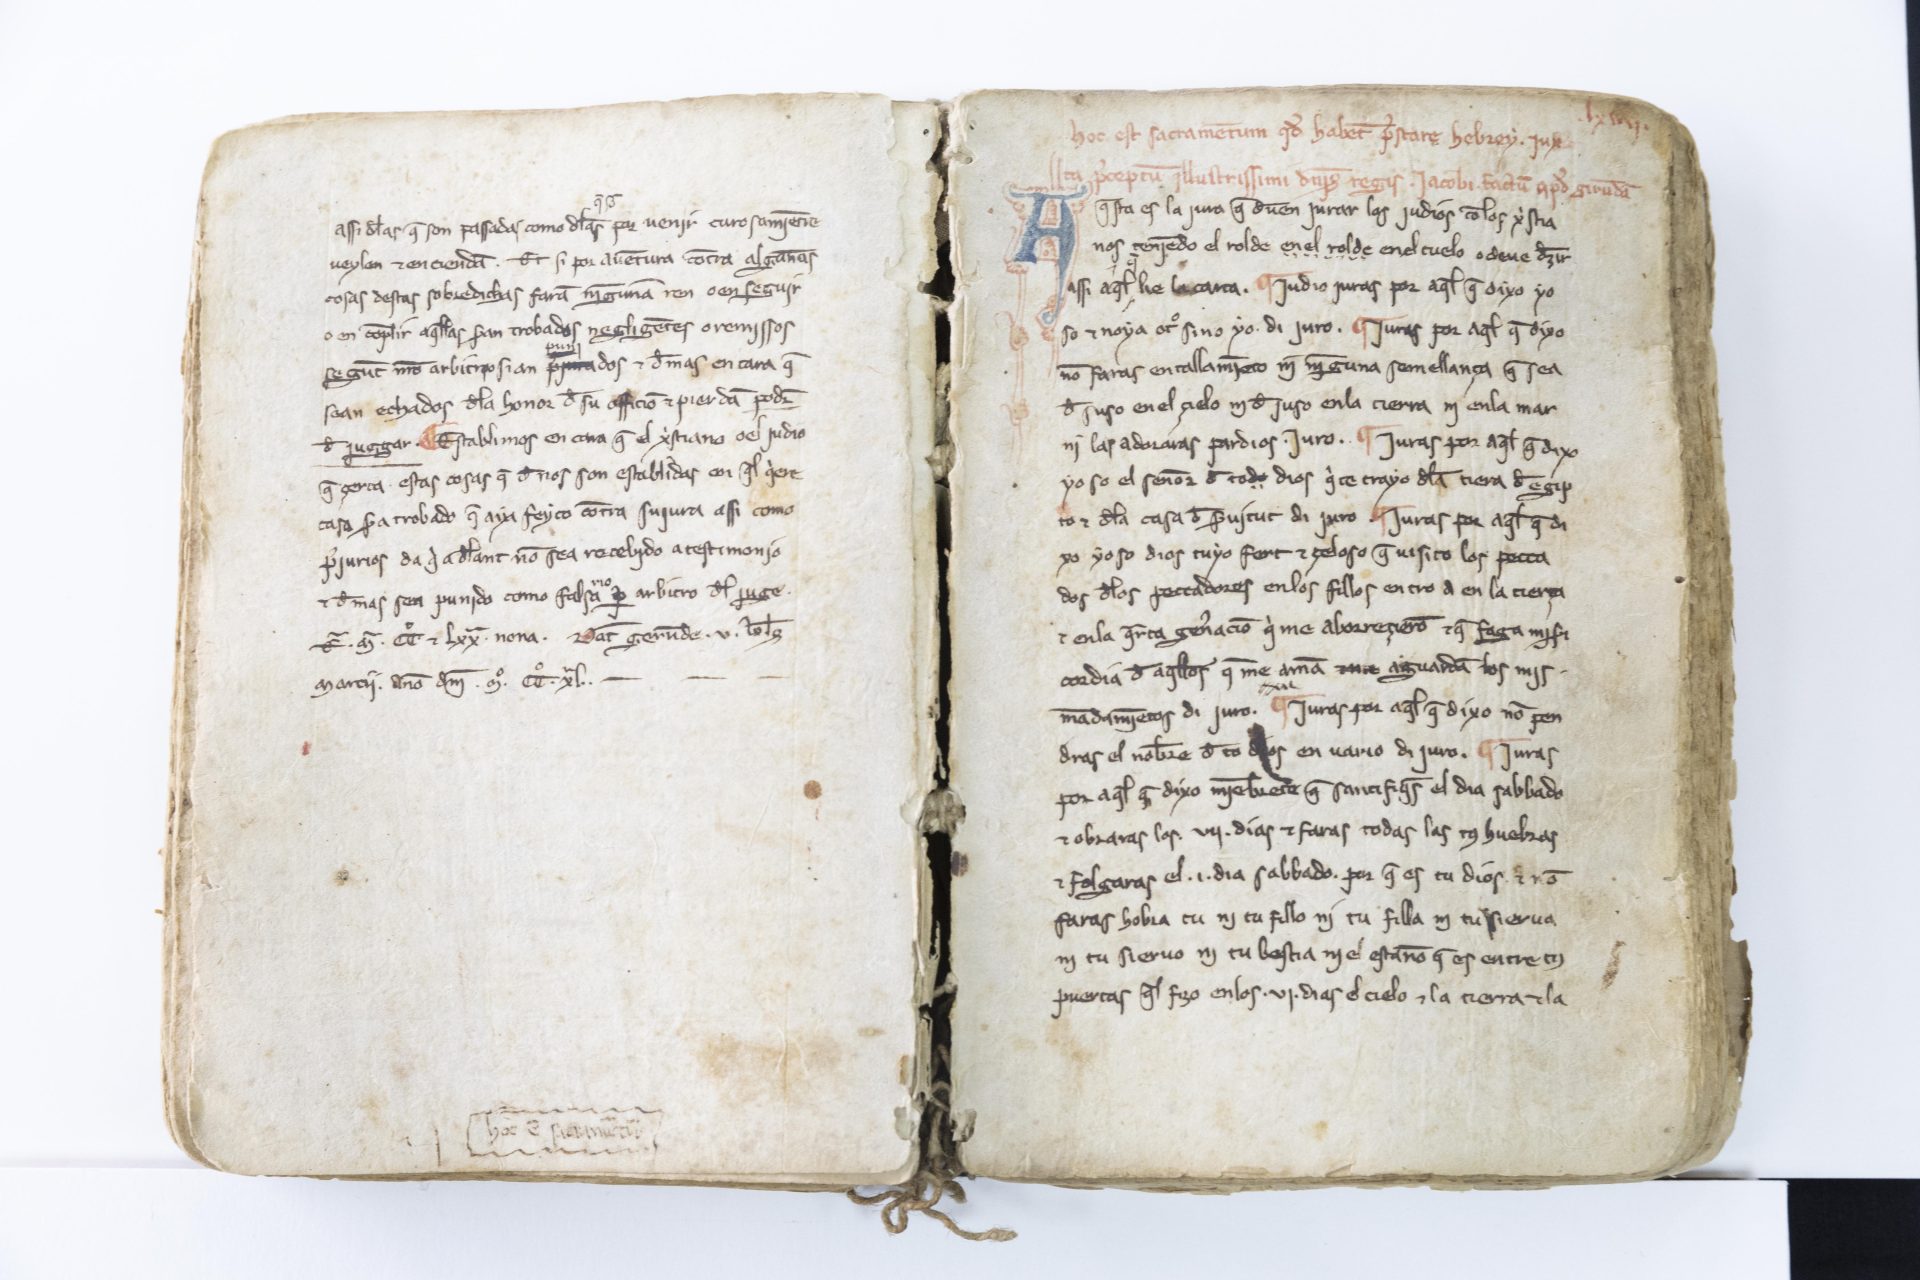 assi dlas q̄ son passadas como dlas por venir curosamētre
veylen ⁊ enciendā. Et si por auētura cōtra algunas
cosas destas sobredichas farā nīguna ren o en seguir
o en cōplir aq̄llas s̄an trobados negligētes o remissos
segūt nr̄o arbitrio sian puni ados ⁊ d̄mas encara q̄
sean echados dla honor d̄ su officio ⁊ pierdā podr̄
d̄ iuggar. ¶ Establimos encara q̄ el xp̄stiano o el judio
estas cosas q̄ d̄ nos son establidas
casa s̄a trobado q̄ aya feyto cōtra su jura assi como
p̄jurios da q̄ adlant nō sea recebido a testimonio
⁊ d̄mas sea punido como falsario arbitro dl juge.
E. M. CC ⁊ lxx nona. Dat̄ gerūde. v.
Marcij. año dn̄i. Mº. CCº. xl.
hoc ē sacramētū
.lxviij.
hoc est sacramētum qd̄ habēt p̄stare hebrey. jux
ta p̄ceptū jllustrissimi regis. Jacobi. factū apd̄ girūdā
Aq̄sta es la jura q̄ deuen jurar los judios cō los xp̄stia
nos teniēdo el rolde en el rolde en el cuelo o deue dzir
assi aq̄l he la carta. ¶ Judio juras por aq̄l q̄ dixo yo
so ⁊ no ya otº sino yo. di juro. ¶ Juras por aq̄l q̄ dixo
nō faras entallamiēto ni nīguna semellança q̄ sea
d̄ suso en el çielo ni d̄ juso en la tierra ni en la mar
ni las adoraras par dios. Juro. ¶ Juras por aq̄l q̄ dixo
yo so el señor d̄ todo dios q̄ te trayo dla tiera d̄ egip
to ⁊ dla casa d̄ s̄uitut di juro. ¶ Juras por aq̄l q̄ di
xo yo so dios tuyo fert ⁊ çeloso q̄ visito los pecca
dos dlos peccadores en los fillos entro a en la tierça
⁊ en la q̄rta gen̄aciō q̄ me aborreçierō ⁊ q̄ faga mis̄i
cordia d̄ aq̄llos q̄ me amā aguardā los mis
mādamiētos di juro. ¶ Juras por aq̄l q̄ dixo nō pen
dras el nōbre d̄ to dios en vario di juro. ¶ Juras
por aq̄l q̄ dixo miēbrete q̄ santifiq̄s el dia sabbado
⁊ obraras los. vij. dias ⁊ faras todas las tus huebras
⁊ folgaras el. i. dia sabbado. por q̄ es tu dios. ⁊ nō
faras hobra tu ni tu fillo ni tu filla ni tu sierua
ni tu siervo ni tu bestia ni el estraño q̄ es entre tus
puertas q̄l fizo en los. vi. dias el cielo ⁊ la tierra ⁊ la